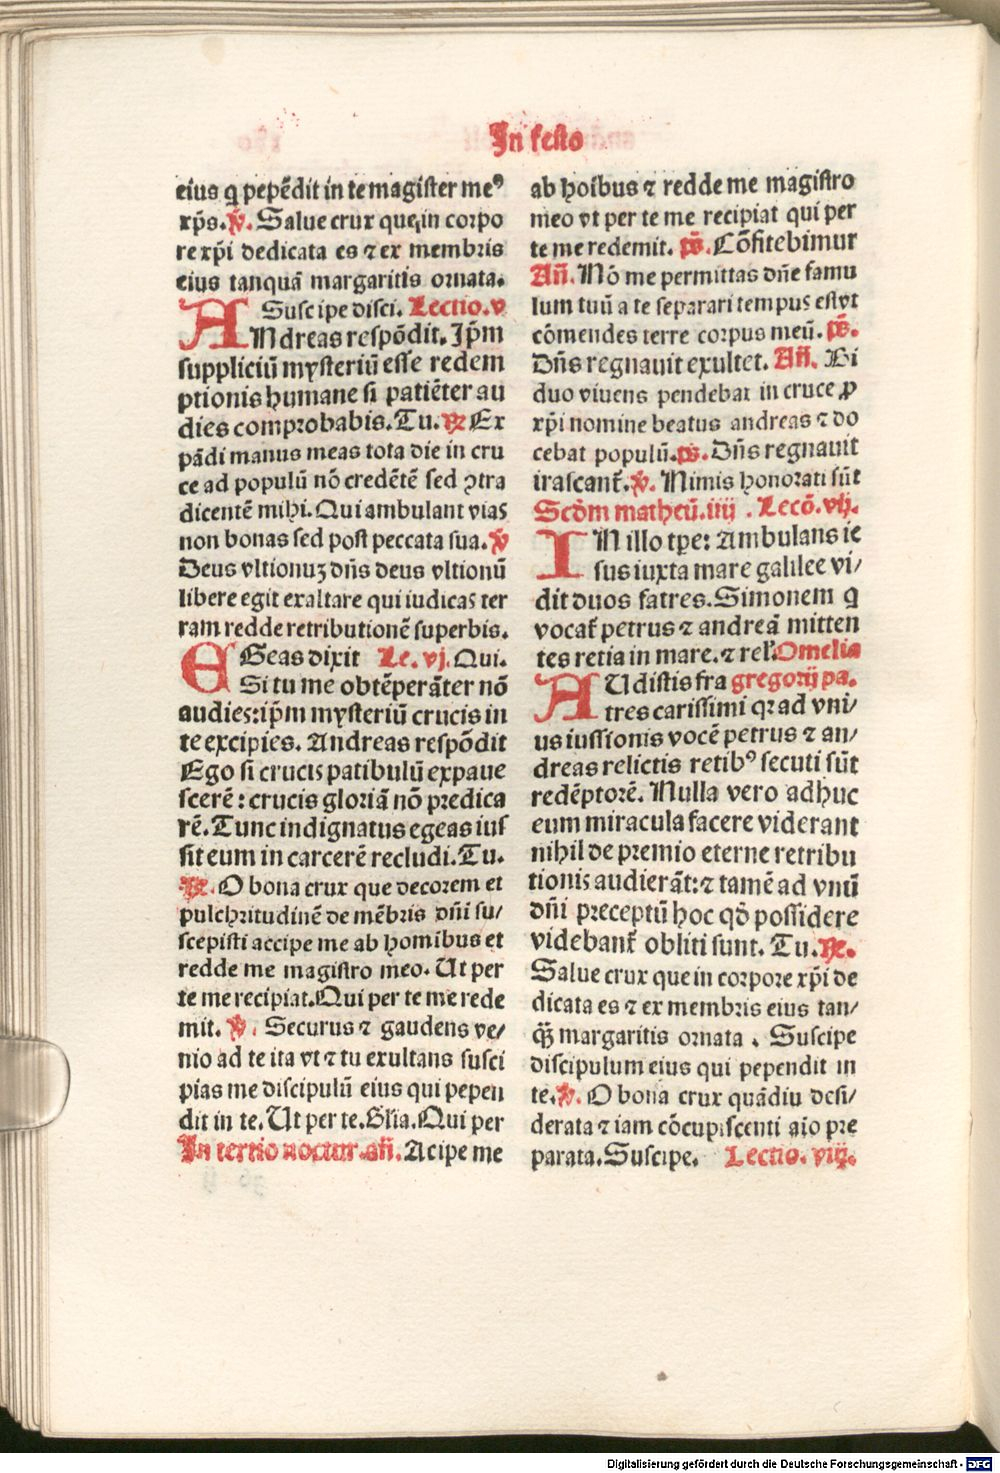 In festo
eius q̃ pepẽdit in te magister me⁹
xp̃s. ℣. Salue crux que in corpo
re xp̃i dedicata es ⁊ ex membris
eius tanquã margaritis ornata.
Suscipe disci. Lectio. v
ANdreas respõdit. Ip̃m
suppliciũ mysteriũ esse redem
ptionis humane si patiẽter au
dies comprobabis. Tu. ℟ Ex
pãdi manus meas tota die in cru
ce ad populũ nõ credẽtẽ sed ꝯtra
dicentẽ mihi. Qui ambulant vias
non bonas sed post peccata sua. ℣
Deus vltionuʒ dñs deus vltionũ
libere egit exaltare qui iudicas ter
ram redde retributionẽ superbis.
EGeas dixit Le. vj. Qui.
Si tu me obtẽperãter nõ
audies: ip̃m mysteriũ crucis in
te excipies. Andreas respõdit
Ego si crucis patibulũ expaue
scerẽ: crucis gloriã nõ predica
rẽ. Tunc indignatus egeas ius
sit eum in carcerẽ recludi. Tu.
℟. O bona crux que decorem et
pulchritudinẽ de mẽbris dñi su/
scepisti accipe me ab homibus et
redde me magistro meo. Ut per
te me recipiat. Qui per te me rede
mit. ℣. Securus ⁊ gaudens ve/
nio ad te ita vt ⁊ tu exultans susci
pias me discipulũ eius qui pepen
dit in te. Ut per te. Glia. Qui per
In tertio noctur. añ. Acipe me
ab hoĩbus ⁊ redde me magistro
meo vt per te me recipiat qui per
te me redemit. ps̃. Cõfitebimur
Añ. Nõ me permittas dñe famu
lum tuũ a te separari tempus est vt
cõmendes terre corpus meũ. ps̃.
Dñs regnauit exultet. Añ. Bi
duo viuens pendebat in cruce ꝓ
xp̃i nomine beatus andreas ⁊ do
cebat populũ. ps̃. Dñs regnauit
irascant᷑. ℣. Nimis honorati sũt
Scd̃m matheũ. iiij. Lecõ. vij.
IN illo tp̃e: Ambulans ie
sus iuxta mare galilee vi/
dit duos fatres. Simonem q̃
vocat᷑ petrus ⁊ andreã mitten
tes retia in mare. ⁊ rel᷑. Omelia
AUdistis fra gregorij pa.
tres carissimi qꝛ ad vni/
us iussionis vocẽ petrus ⁊ an/
dreas relictis retib⁹ secuti sũt
redẽptorẽ. Nulla vero adhuc
eum miracula facere viderant
nihil de premio eterne retribu
tionis audierãt: ⁊ tamẽ ad vnũ
dñi preceptũ hoc qd̃ possidere
videbant᷑ obliti sunt. Tu. ℟.
Salue crux que in corpore xp̃i de
dicata es ⁊ ex membris eius tan/
q̃ margaritis ornata. Suscipe
discipulum eius qui pependit in
te. ℣. O bona crux quãdiu desi/
derata ⁊ iam cõcupiscenti aio pre
parata. Suscipe. Lectio. viij.
Digitalisierung gefördert durch die Deutsche Forschungsgemeinschaft - DFG